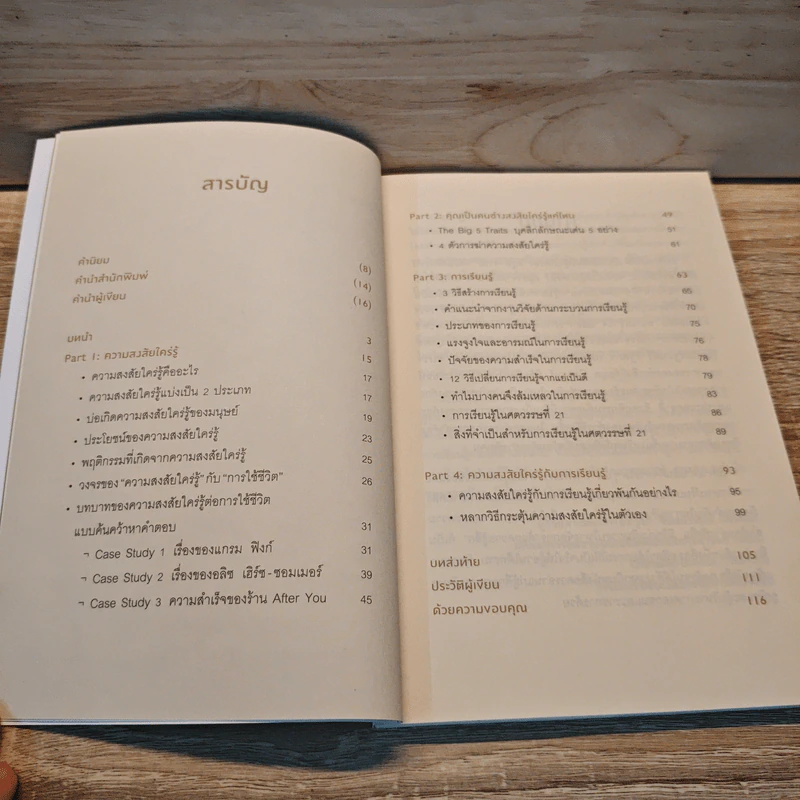 สารบัญ
คำนิยม (8)
คำนำสำนักพิมพ์ (14)
คำนำผู้เขียน (16)
บทนำ 3
Part 1: ความสงสัยใคร่รู้ 15
• ความสงสัยใคร่รู้คืออะไร 17
• ความสงสัยใคร่รู้แบ่งเป็น 2 ประเภท 17
• บ่อเกิดความสงสัยใคร่รู้ของมนุษย์ 19
• ประโยชน์ของความสงสัยใคร่รู้ 23
• พฤติกรรมที่เกิดจากความสงสัยใคร่รู้ 25
• วงจรของ "ความสงสัยใคร่รู้" กับ "การใช้ชีวิต" 26
• บทบาทของความสงสัยใคร่รู้ต่อการใช้ชีวิต
แบบค้นคว้าหาคำตอบ 31
¬ Case Study 1 เรื่องของแกรม ฟิงก์ 31
¬ Case Study 2 เรื่องของอลิซ เฮิร์ซ-ซอมเมอร์ 39
¬ Case Study 3 ความสำเร็จของร้าน After You 45
Part 2: คุณเป็นคนช่างสงสัยใคร่รู้แค่ไหน 49
• The Big 5 Traits บุคลิกลักษณะเด่น 5 อย่าง 51
• 4 ตัวการฆ่าความสงสัยใคร่รู้ 61
Part 3: การเรียนรู้ 63
• 3 วิธีสร้างการเรียนรู้ 65
• คำแนะนำจากงานวิจัยด้านกระบวนการเรียนรู้ 70
• ประเภทของการเรียนรู้ 75
• แรงจูงใจและอารมณ์ในการเรียนรู้ 76
• ปัจจัยของความสำเร็จในการเรียนรู้ 78
• 12 วิธีเปลี่ยนการเรียนรู้จากแย่เป็นดี 79
• ทำไมบางคนจึงล้มเหลวในการเรียนรู้ 83
• การเรียนรู้ในศตวรรษที่ 21 86
• สิ่งที่จำเป็นสำหรับการเรียนรู้ในศตวรรษที่ 21 89
Part 4: ความสงสัยใคร่รู้กับการเรียนรู้ 93
• ความสงสัยใคร่รู้กับการเรียนรู้เกี่ยวพันกันอย่างไร 95
• หลากวิธีกระตุ้นความสงสัยใคร่รู้ในตัวเอง 99
บทส่งท้าย 105
ประวัติผู้เขียน 111
ด้วยความขอบคุณ 116